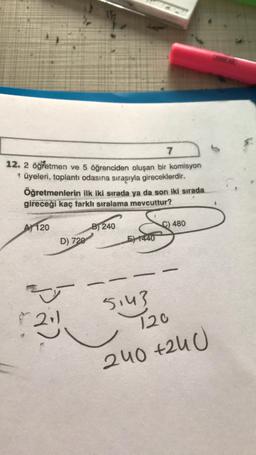 7
12. 2 öğretmen ve 5 öğrenciden oluşan bir komisyon
üyeleri, toplantı odasına sırasıyla gireceklerdir.
Öğretmenlerin ilk iki sırada ya da son iki sırada
gireceği kaç farklı sıralama mevcuttur?
A) 120 B) 240 C) 480
D) 720 E) 1440
2.1
5.4.3
120
240 + 240